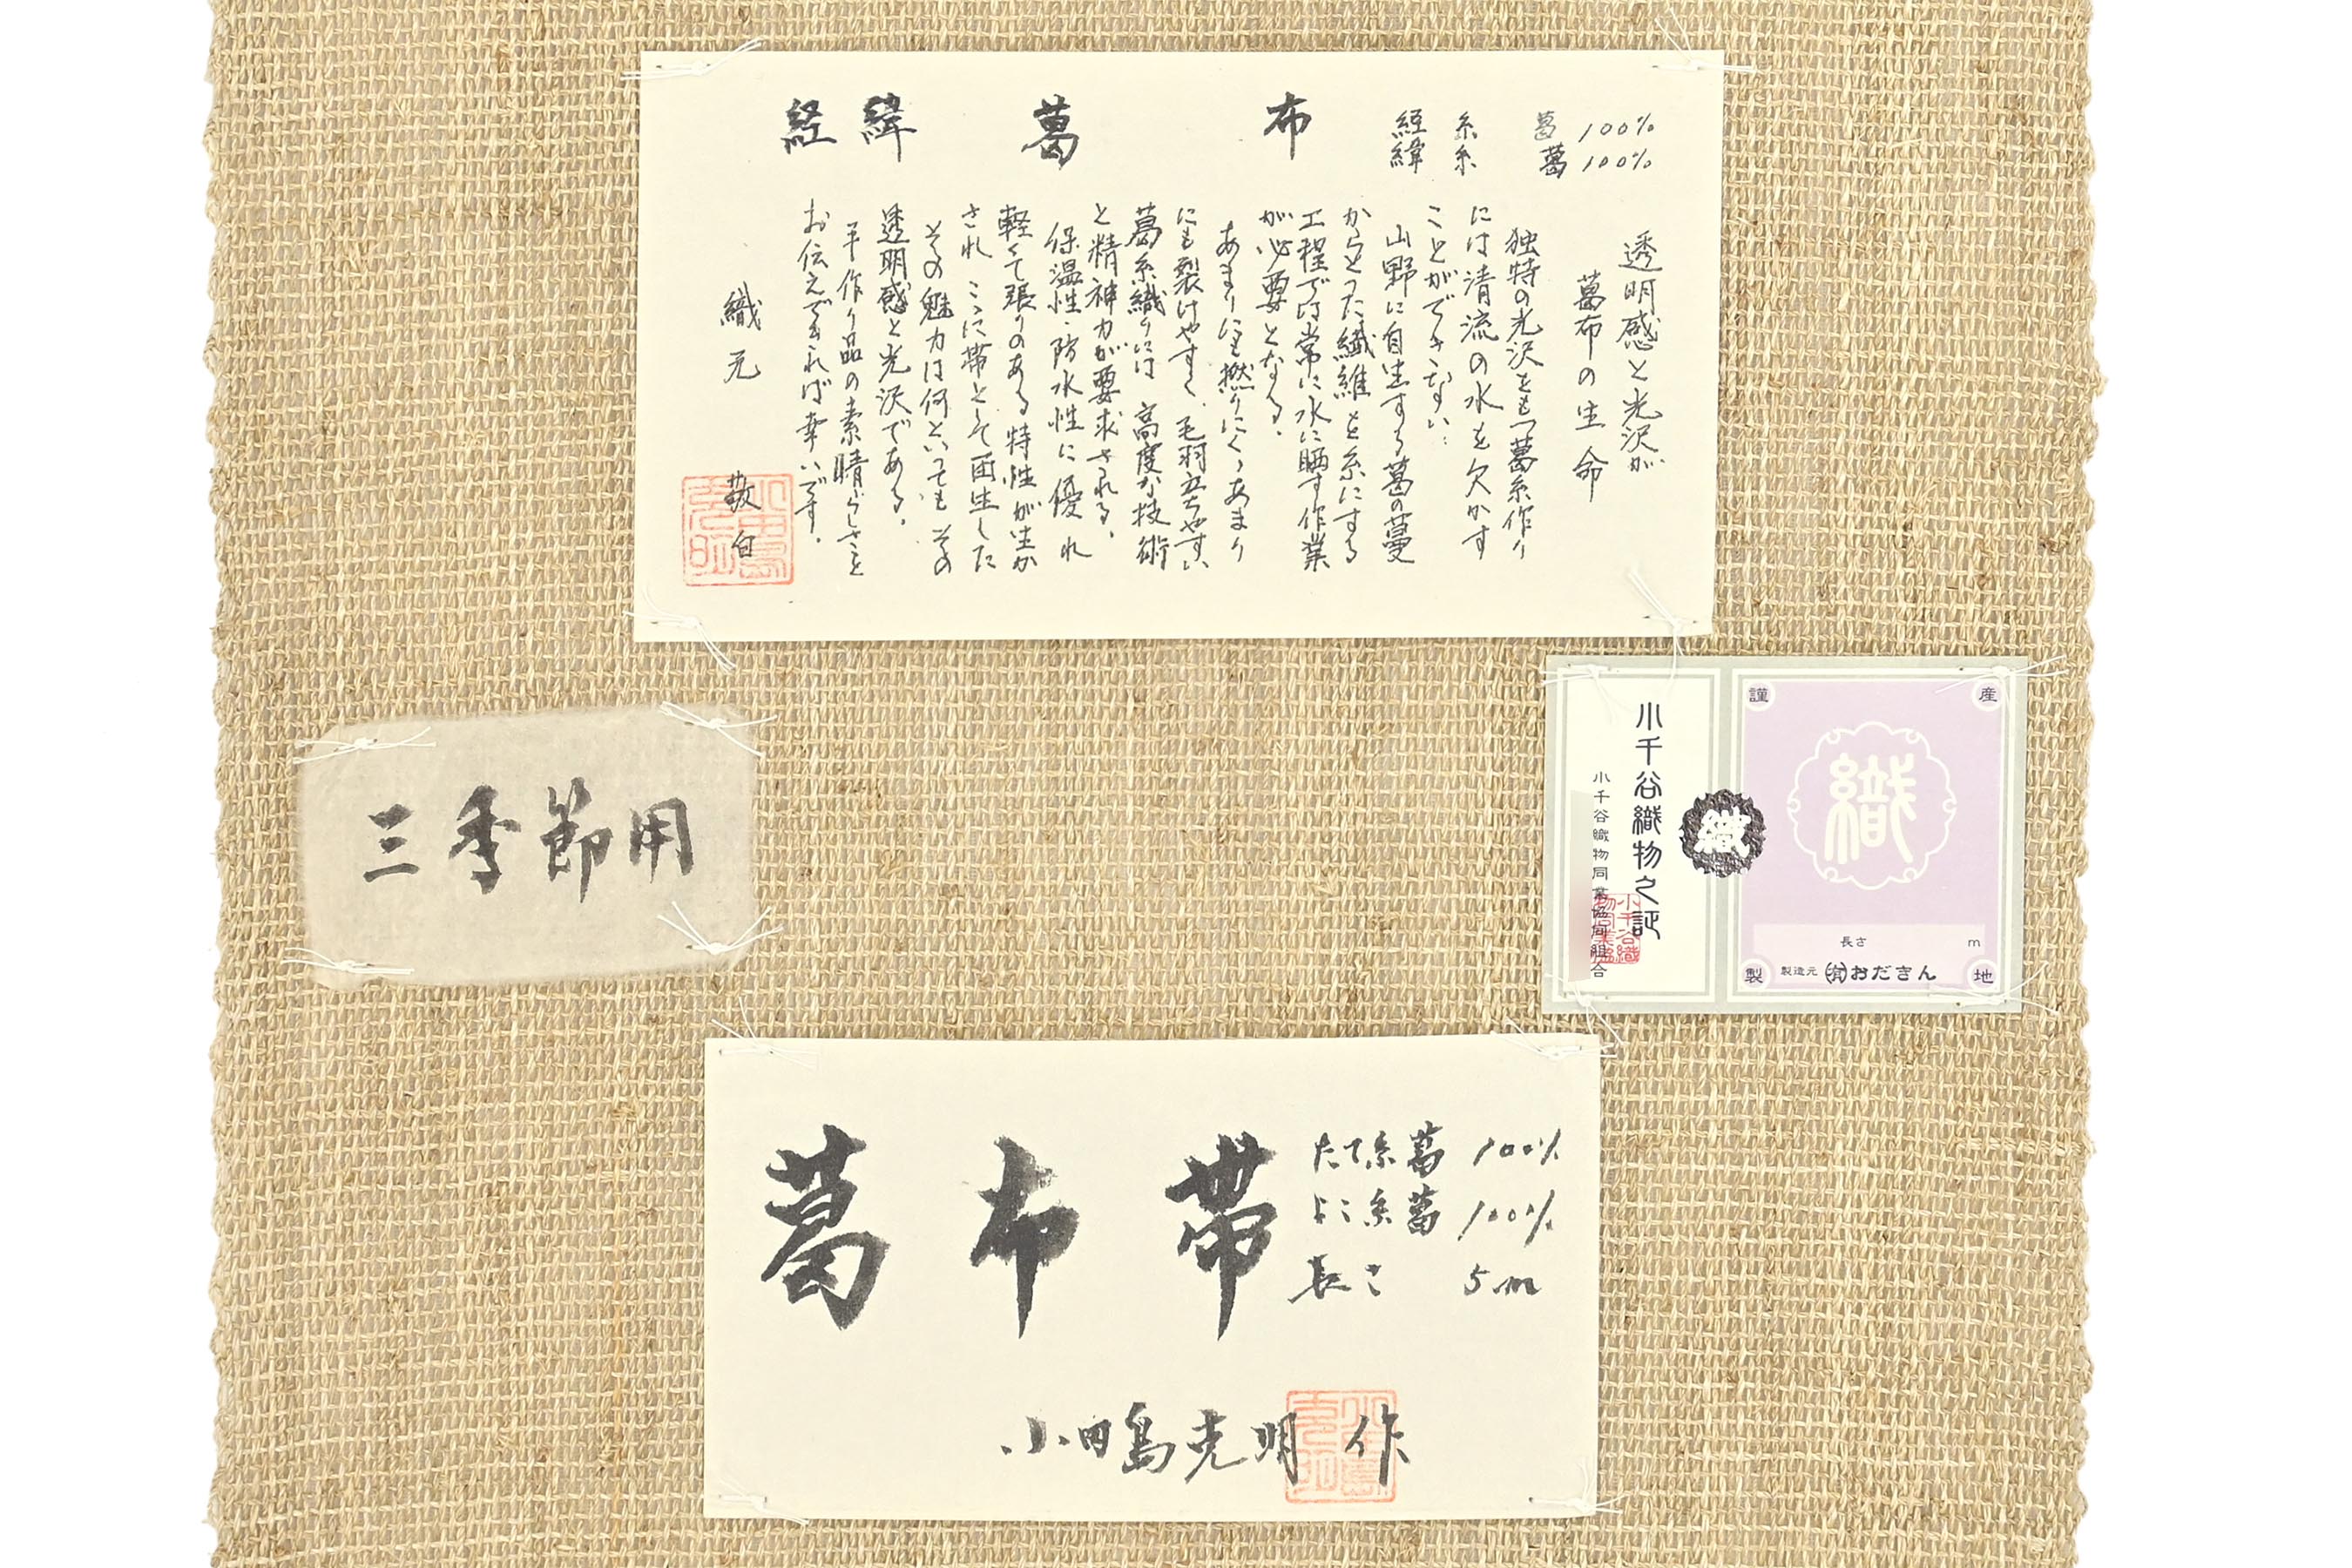 経緯葛布
経糸 葛100%
緯糸 葛100%
透明感と光沢が
葛布の生命
独特の光沢をもつ葛糸作り
には清流の水を欠かす
ことができない:
山野に自生する葛の蔓
からとった繊維を糸にする
工程では常に水に晒す作業
が必要となる.
あまりにも撚りにくゝあまり
にも裂けやすく.毛羽立ちやすい
葛糸織りには 高度な技術
と精神力が要求される.
保温性・防水性に優れ
軽くて張りのある特性が生か
され こゝに帯として再生した
その魅力は何といっても その
透明感と光沢である.
手作り品の素晴らしさを
お伝えできれば幸いです.
織元
敬白
三季節用
小千谷織物之証
小千谷織物同業協同組合
織
謹
産
織
長さ m
製
製造元 (有)おだきん
地
葛布帯
たて糸葛 100%
よこ糸葛 100%
長さ 5m
小田島克明 作